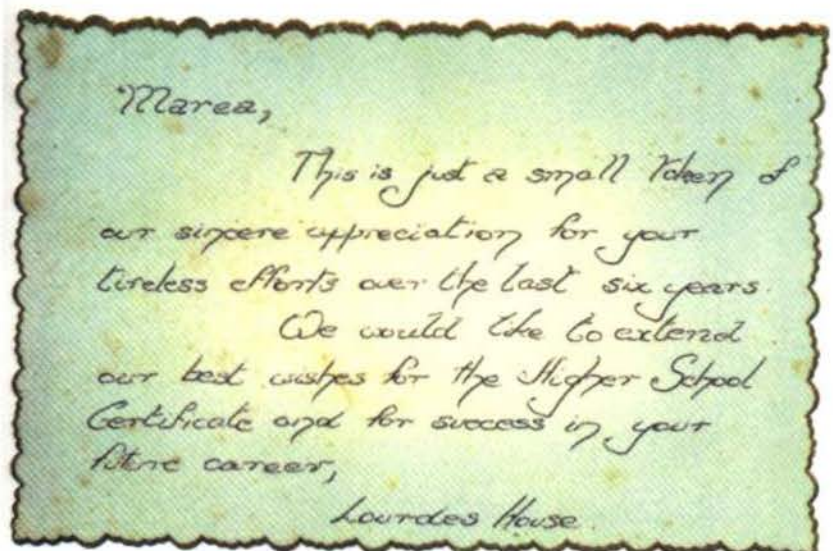 Marea,
This is just a small token of
our sincere appreciation for your
tireless efforts over the last six years.
We would like to extend
our best wishes for the Higher School
Certificate and for success in your
future career,
Lourdes House.